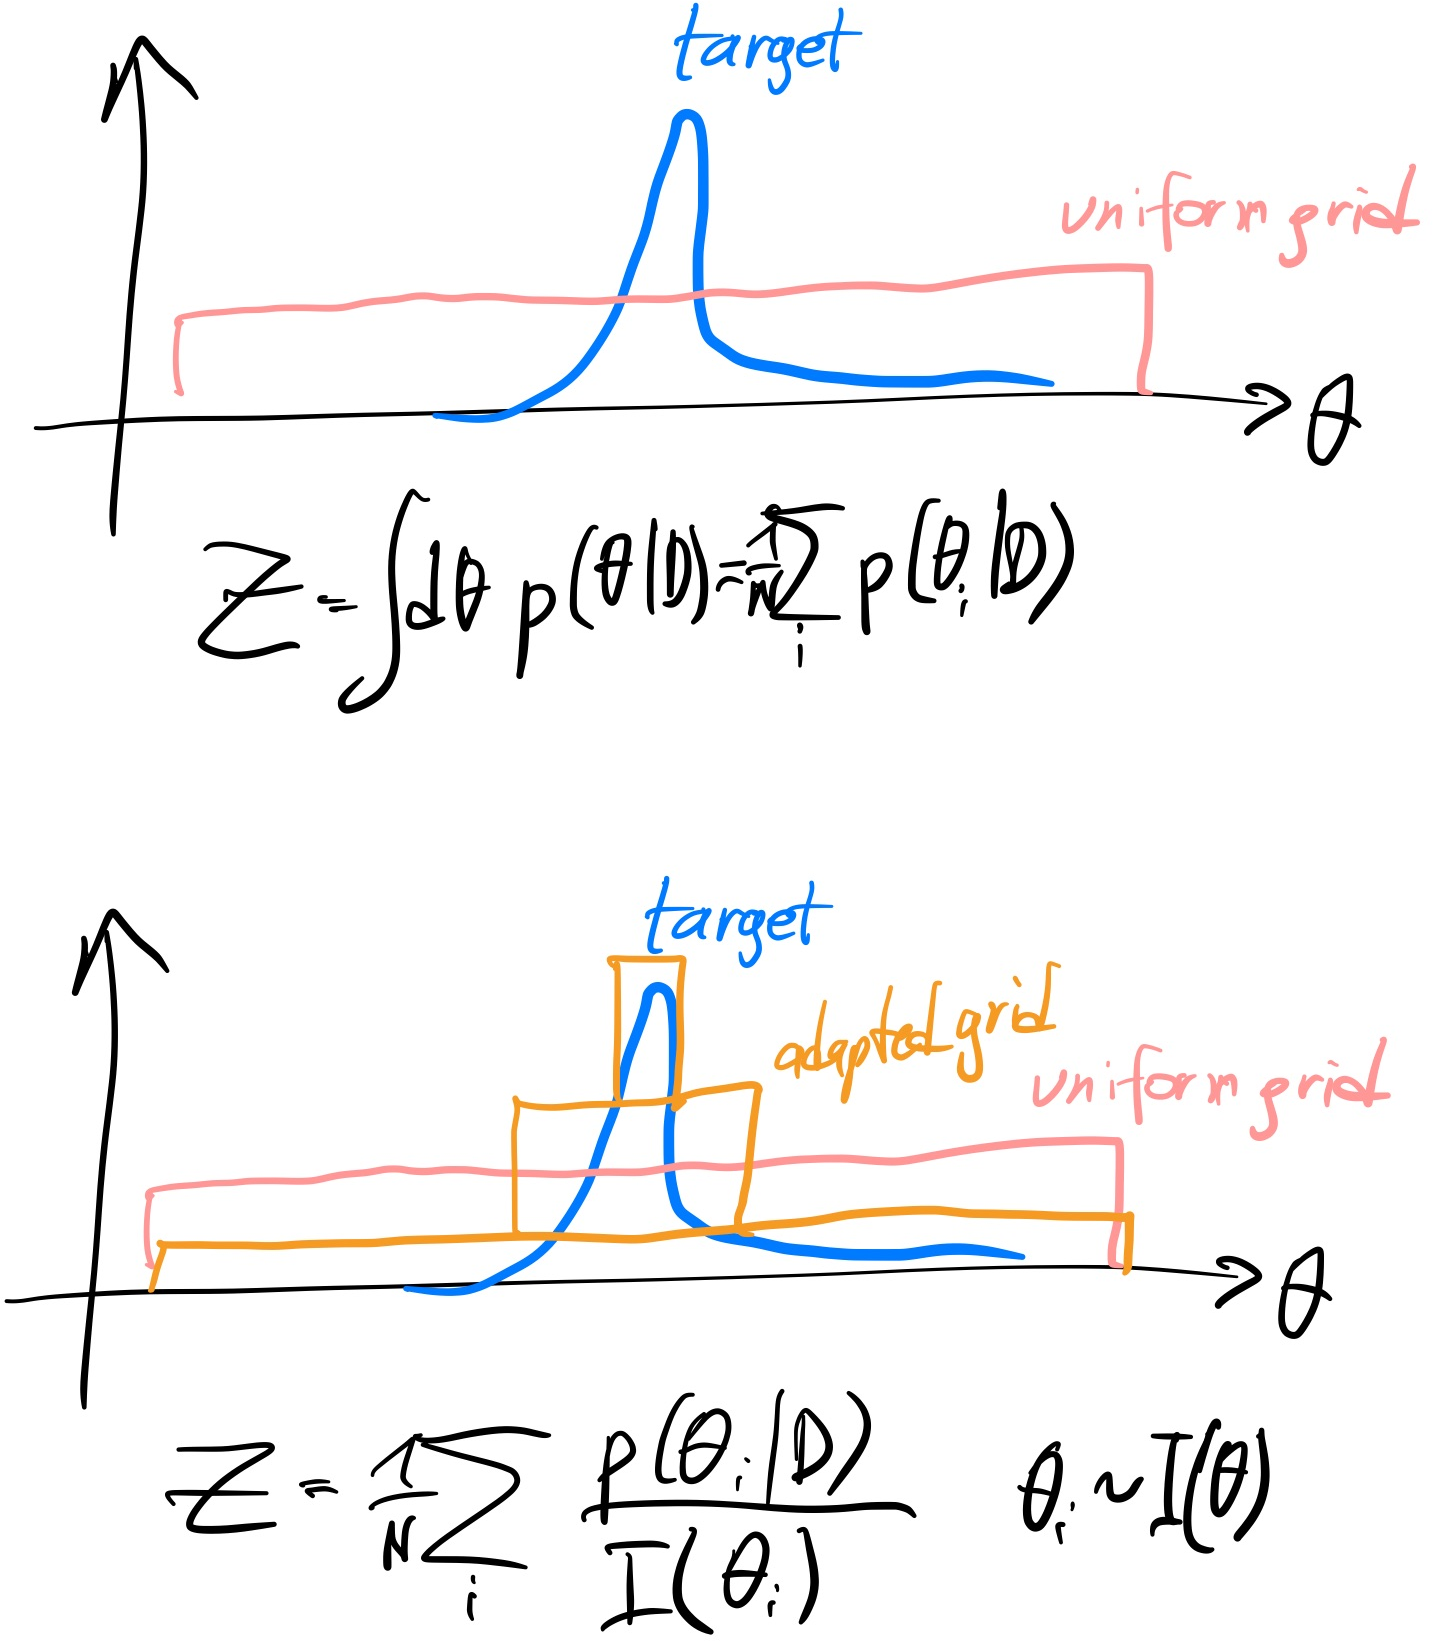 target
uniform grid
θ
Z = ∫dθ p(θ|D) ≈ 1/N ∑_i p(θ_i|D)
target
adapted grid
uniform grid
θ
Z = 1/N ∑_i p(θ_i|D)/I(θ_i) θ_i ~ I(θ)